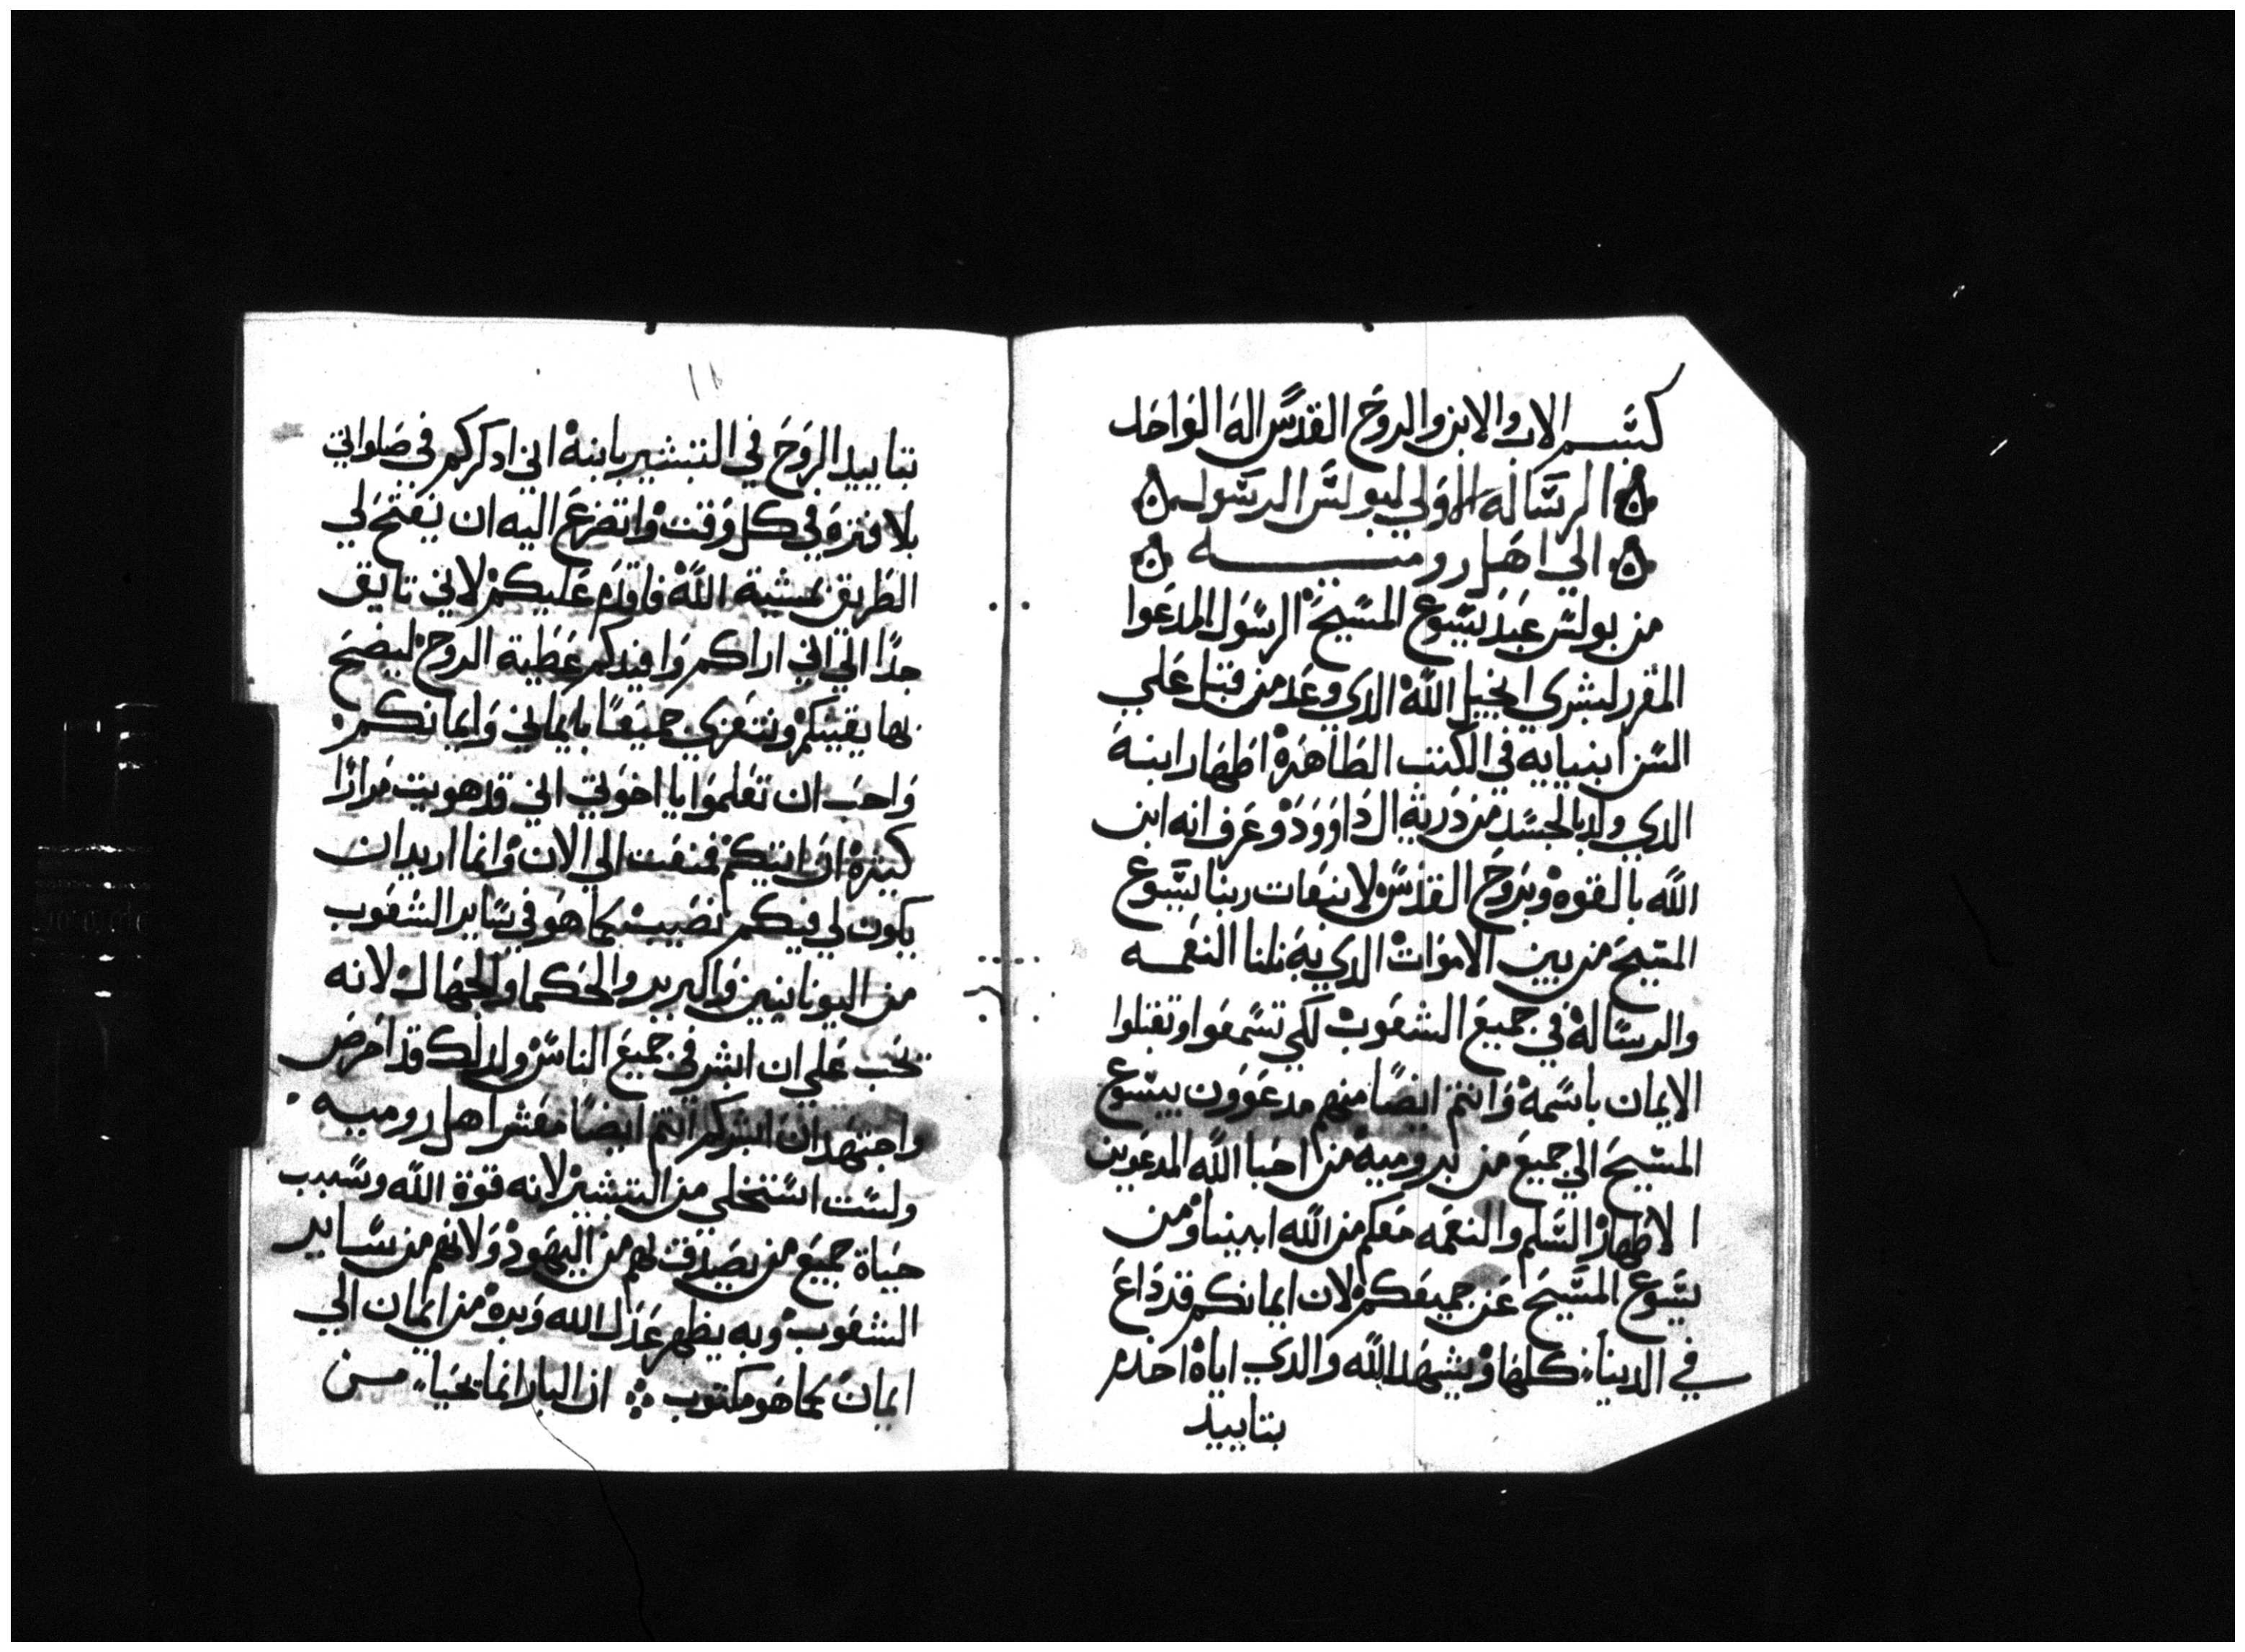 بسم الاب والابن والروح القدس اله الواحد
الرساله الاولي لبولس الرسول
الي اهل روميه
من بولس عبد يسوع المسيح الرسول المدعوا
المقرر لبشري انجيل الله الدي وعد من قبل علي
السن انبيايه في الكتب الطاهرة اظهار ابنه
الدي ولد بالجسد من درية ال داوود وعرف انه ابن
الله بالقوه وبروح القدس لانبعات ربنا يسوع
المسيح من بين الاموات الدي به نلنا النعمه
والرسالة في جميع الشعوب لكي تسمعوا وتقبلوا
الايمان باسمه وانتم ايضا منهم مدعوون بيسوع
المسيح الي جميع من بروميه من احبا الله المدعوين
الاطهار السلم والنعمه معكم من الله ابينا ومن
يسوع المسيح عن جميعكم لان ايمانكم قد داع
في الدنيا كلها ويشهد الله والدي اياه اخدم
بتاييد
بتاييد الروح في التبشير بابنه اني ادكركم في صلواتي
بلا فترة في كل وقت واتضرع اليه ان يفتح لي
الطريق بمشية الله فاقدم عليكم لاني تايق
جدا الي اني اراكم وافيدكم عطية الروح ليصح
بها يقينكم ونتعزي جميعا بايماني وايمانكم
واحب ان تعلموا يا اخوتي اني قد هويت مرارا
كتيرة ان اتيكم فمنعت الي الان وانما اريد ان
يكون لي فيكم نصيب كما هو في ساير الشعوب
من اليونانيين والبربر والحكما والجهال لانه
يجب علي ان ابشر في جميع الناس ولدلك قد احرص
واجتهد ان ابشركم انتم ايضا معشر اهل روميه
ولست استخلي من التبشير لانه قوة الله وسبب
حياة جميع من يصدق لهم من اليهود ولانهم من ساير
الشعوب وبه يظهر عدل الله وبره من ايمان الي
ايمان كما هو مكتوب ان البار انما يحيا من